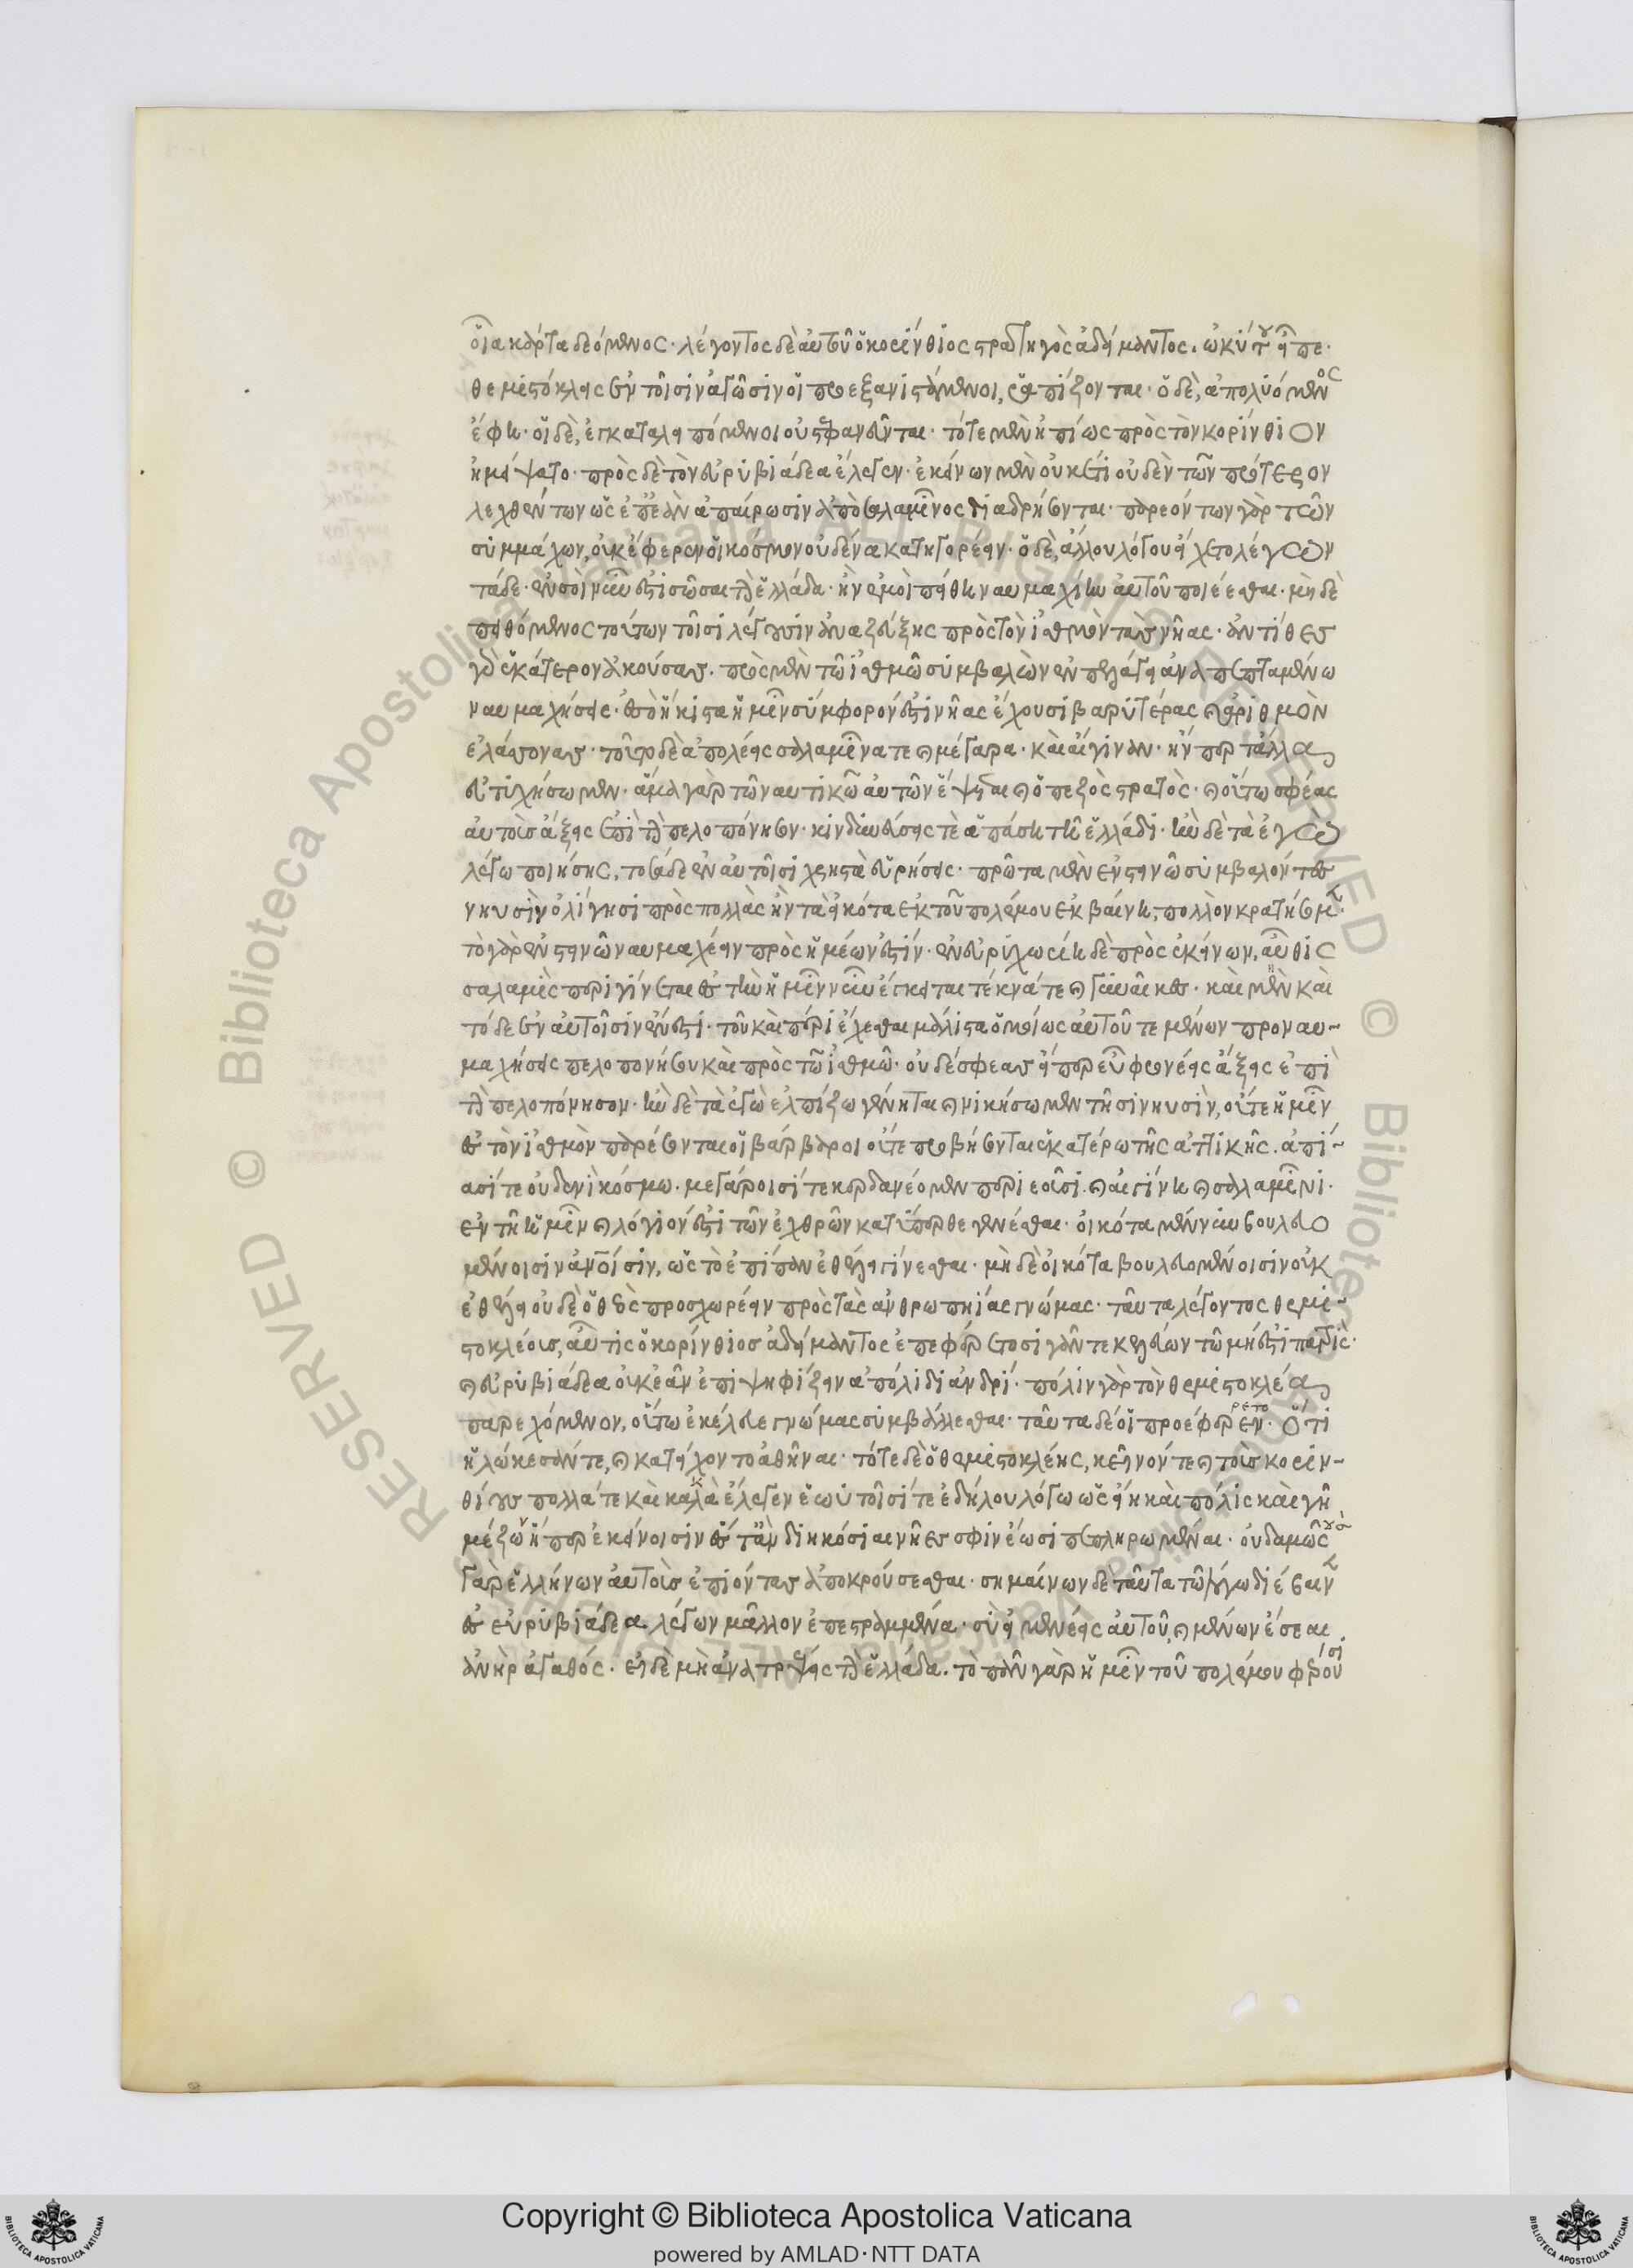 οἷα κάρτα δεόμενος· λέγοντος δὲ αὐτοῦ ὁ κορίνθιος στρατηγὸς ἀδείμαντος ὠκύτου εἶπε·
θεμιστόκλεες ἐν τοῖσιν ἀγῶσιν οἱ προεξανιστάμενοι, ῥαπίζονται· ὁ δὲ, ἀπολυόμενος
ἔφη· οἱ δὲ, ἐγκαταλειπόμενοι οὐ στεφανοῦνται· τότε μὲν ἠπίως πρὸς τὸν κορίνθιον
ἠμείψατο· πρὸς δὲ τὸν εὐρυβιάδεα ἔλεγεν· ἐκείνων μὲν οὐκέτι οὐδὲν τῶν πρότερον
λεχθέντων ὡς ἐπεὰν ἀπαίρωσιν ἀπὸ σαλαμῖνος διαδρήσονται· παρεόντων γὰρ τῶν
συμμάχων, οὐκ ἔφερεν οἱ κόσμον οὐδένα κατηγορέειν· ὁ δὲ, ἄλλου λόγου εἴχετο λέγων
τάδε· ἐν σοὶ νῦν ἐστὶ σῶσαι τὴν ἑλλάδα· ἢν ἐμοὶ πείθῃ ναυμαχίην αὐτοῦ ποιέεσθαι· μὴ δὲ
πειθόμενος τούτων τοῖσι λέγουσιν ἀναζεύξῃς πρὸς τὸν ἰσθμὸν τὰς νῆας· ἀντίθες
γὰρ ἑκάτερον ἀκούσας· πρὸς μὲν τῷ ἰσθμῷ συμβαλὼν ἐν πελάγει ἀναπεπταμένω
ναυμαχήσεις· ἐς τὸ ἥκιστα ἡμῖν σύμφορόν ἐστι νῆας ἔχουσι βαρυτέρας καὶ ἀριθμὸν
ἐλάσσονας· τοῦτο δὲ ἀπολέεις σαλαμῖνα τε καὶ μέγαρα· καὶ αἴγιναν· ἤν περ τἄλλα
εὐτυχήσωμεν· ἅμα γὰρ τῶ ναυτικῶ αὐτῶν ἕψεται καὶ ὁ πεζὸς στρατὸς· καὶ οὕτω σφέας
αὐτὸς ἄξεις ἐπὶ τὴν πελοπόνησον· κινδυνεύσεις τὲ ἁπάσῃ τῇ ἑλλάδι· ἢν δὲ τὰ ἐγὼ
λέγω ποιήσῃς, τοσάδε ἐν αὐτοῖσι χρηστὰ εὑρήσεις· πρῶτα μὲν ἐν στεινῶ συμβαλόντες
νηυσὶν ὀλίγῃσι πρὸς πολλὰς ἢν τὰ εἰκότα ἐκ τοῦ πολέμου ἐκβαίνῃ, πολλὸν κρατήσομεν·
τὸ γὰρ ἐν στεινῶ ναυμαχέειν πρὸς ἡμέων ἐστίν· ἐν εὐρυχωρίῃ δὲ πρὸς ἐκείνων, αὖθις
σαλαμὶς περιγίνεται ἐς τὴν ἡμῖν νῦν ἔγκειται τέκνά τε καὶ γυναῖκες· καὶ μὴν καὶ
τόδε ἐν αὐτοῖσιν ἔνεστι· τοῦ καὶ περιέχεσθαι μάλιστα ὁμοίως αὐτοῦ τε μένων προναυ-
μαχήσεις πελοπονήσου καὶ πρὸς τῶ ἰσθμῶ· οὐδέ σφεας εἴπερ εὖ φρονέεις ἄξεις ἐπὶ
τὴν πελοπόνησον· ἢν δὲ τὰ ἐγὼ ἐλπίζω γένηται καὶ νικήσωμεν τῇσι νηυσὶν, οὔτε ἡμῖν
ἐς τὸν ἰσθμὸν παρέσονται οἱ βάρβαροι οὔτε προβήσονται ἑκατέρω τῆς ἀττικῆς· ἀπί-
ασί τε οὐδενὶ κόσμω· μεγάροισί τε κερδανέομεν περιεοῦσι· καὶ αἰγίνῃ καὶ σαλαμῖνι·
ἐν τῇ ἡμῖν καὶ λόγιόν ἐστι τῶν ἐχθρῶν κατύπερθε γενέσθαι· οἰκότα μέν νυν βουλευο
μένοισιν ἀνοίσιν, ὡς τὸ ἐπίπαν ἐθέλει γίνεσθαι· μὴ δὲ οἰκότα βουλευομένοισιν οὐκ
ἐθέλει οὐδὲ ὁ θεὸς προσχωρέειν πρὸς τὰς ἀνθρωπηίας γνώμας· ταῦτα λέγοντος θεμι-
στοκλέους, αὖτις ὁ κορίνθιος ἀδείμαντος ἐπεφέρετο σιγᾶν τε κελεύων τῶ μή ἐστι πατρὶς·
καὶ εὐρυβιάδεα οὐκ ἐᾶν ἐπιψηφίζειν ἀπόλιδι ἀνδρί· πόλιν γὰρ τὸν θεμιστοκλέα
παρεχόμενον, οὕτω ἐκέλευε γνώμας συμβάλλεσθαι· ταῦτα δέ οἱ προέφερεν· ὅτι
ρετο
ἡλώκεσάν τε, καὶ κατείχοντο ἀθῆναι· τότε δὲ ὁ θεμιστοκλέης, κεῖνόν τε καὶ τοὺς κοριν-
θίους πολλά τε καὶ καλὰ ἔλεγεν ἑωυτοῖσί τε ἐδήλου λόγω ὡς εἴη καὶ πόλις καὶ γῆ
μέζων ἤπερ ἐκείνοισιν ἔς τ' ἂν διηκόσιαι νῆες σφιν ἔωσι πεπληρωμέναι· οὐδαμῶς
γὰρ ἑλλήνων αὐτοὺς ἐπιόντας ἀποκρούσεσθαι· σημαίνων δὲ ταῦτα τῶ λόγω διέβαινεν
ἐς εὐρυβιάδεα λέγων μᾶλλον ἐπεστραμμένα· σὺ εἰ μενέεις αὐτοῦ, καὶ μένων ἔσεαι
ἀνὴρ ἀγαθός· εἰ δὲ μὴ ἀνατρέψεις τὴν ἑλλάδα· τὸ πᾶν γὰρ ἡμῖν τοῦ πολέμου φέρουσι
Copyright © Biblioteca Apostolica Vaticana
powered by AMLAD·NTT DATA